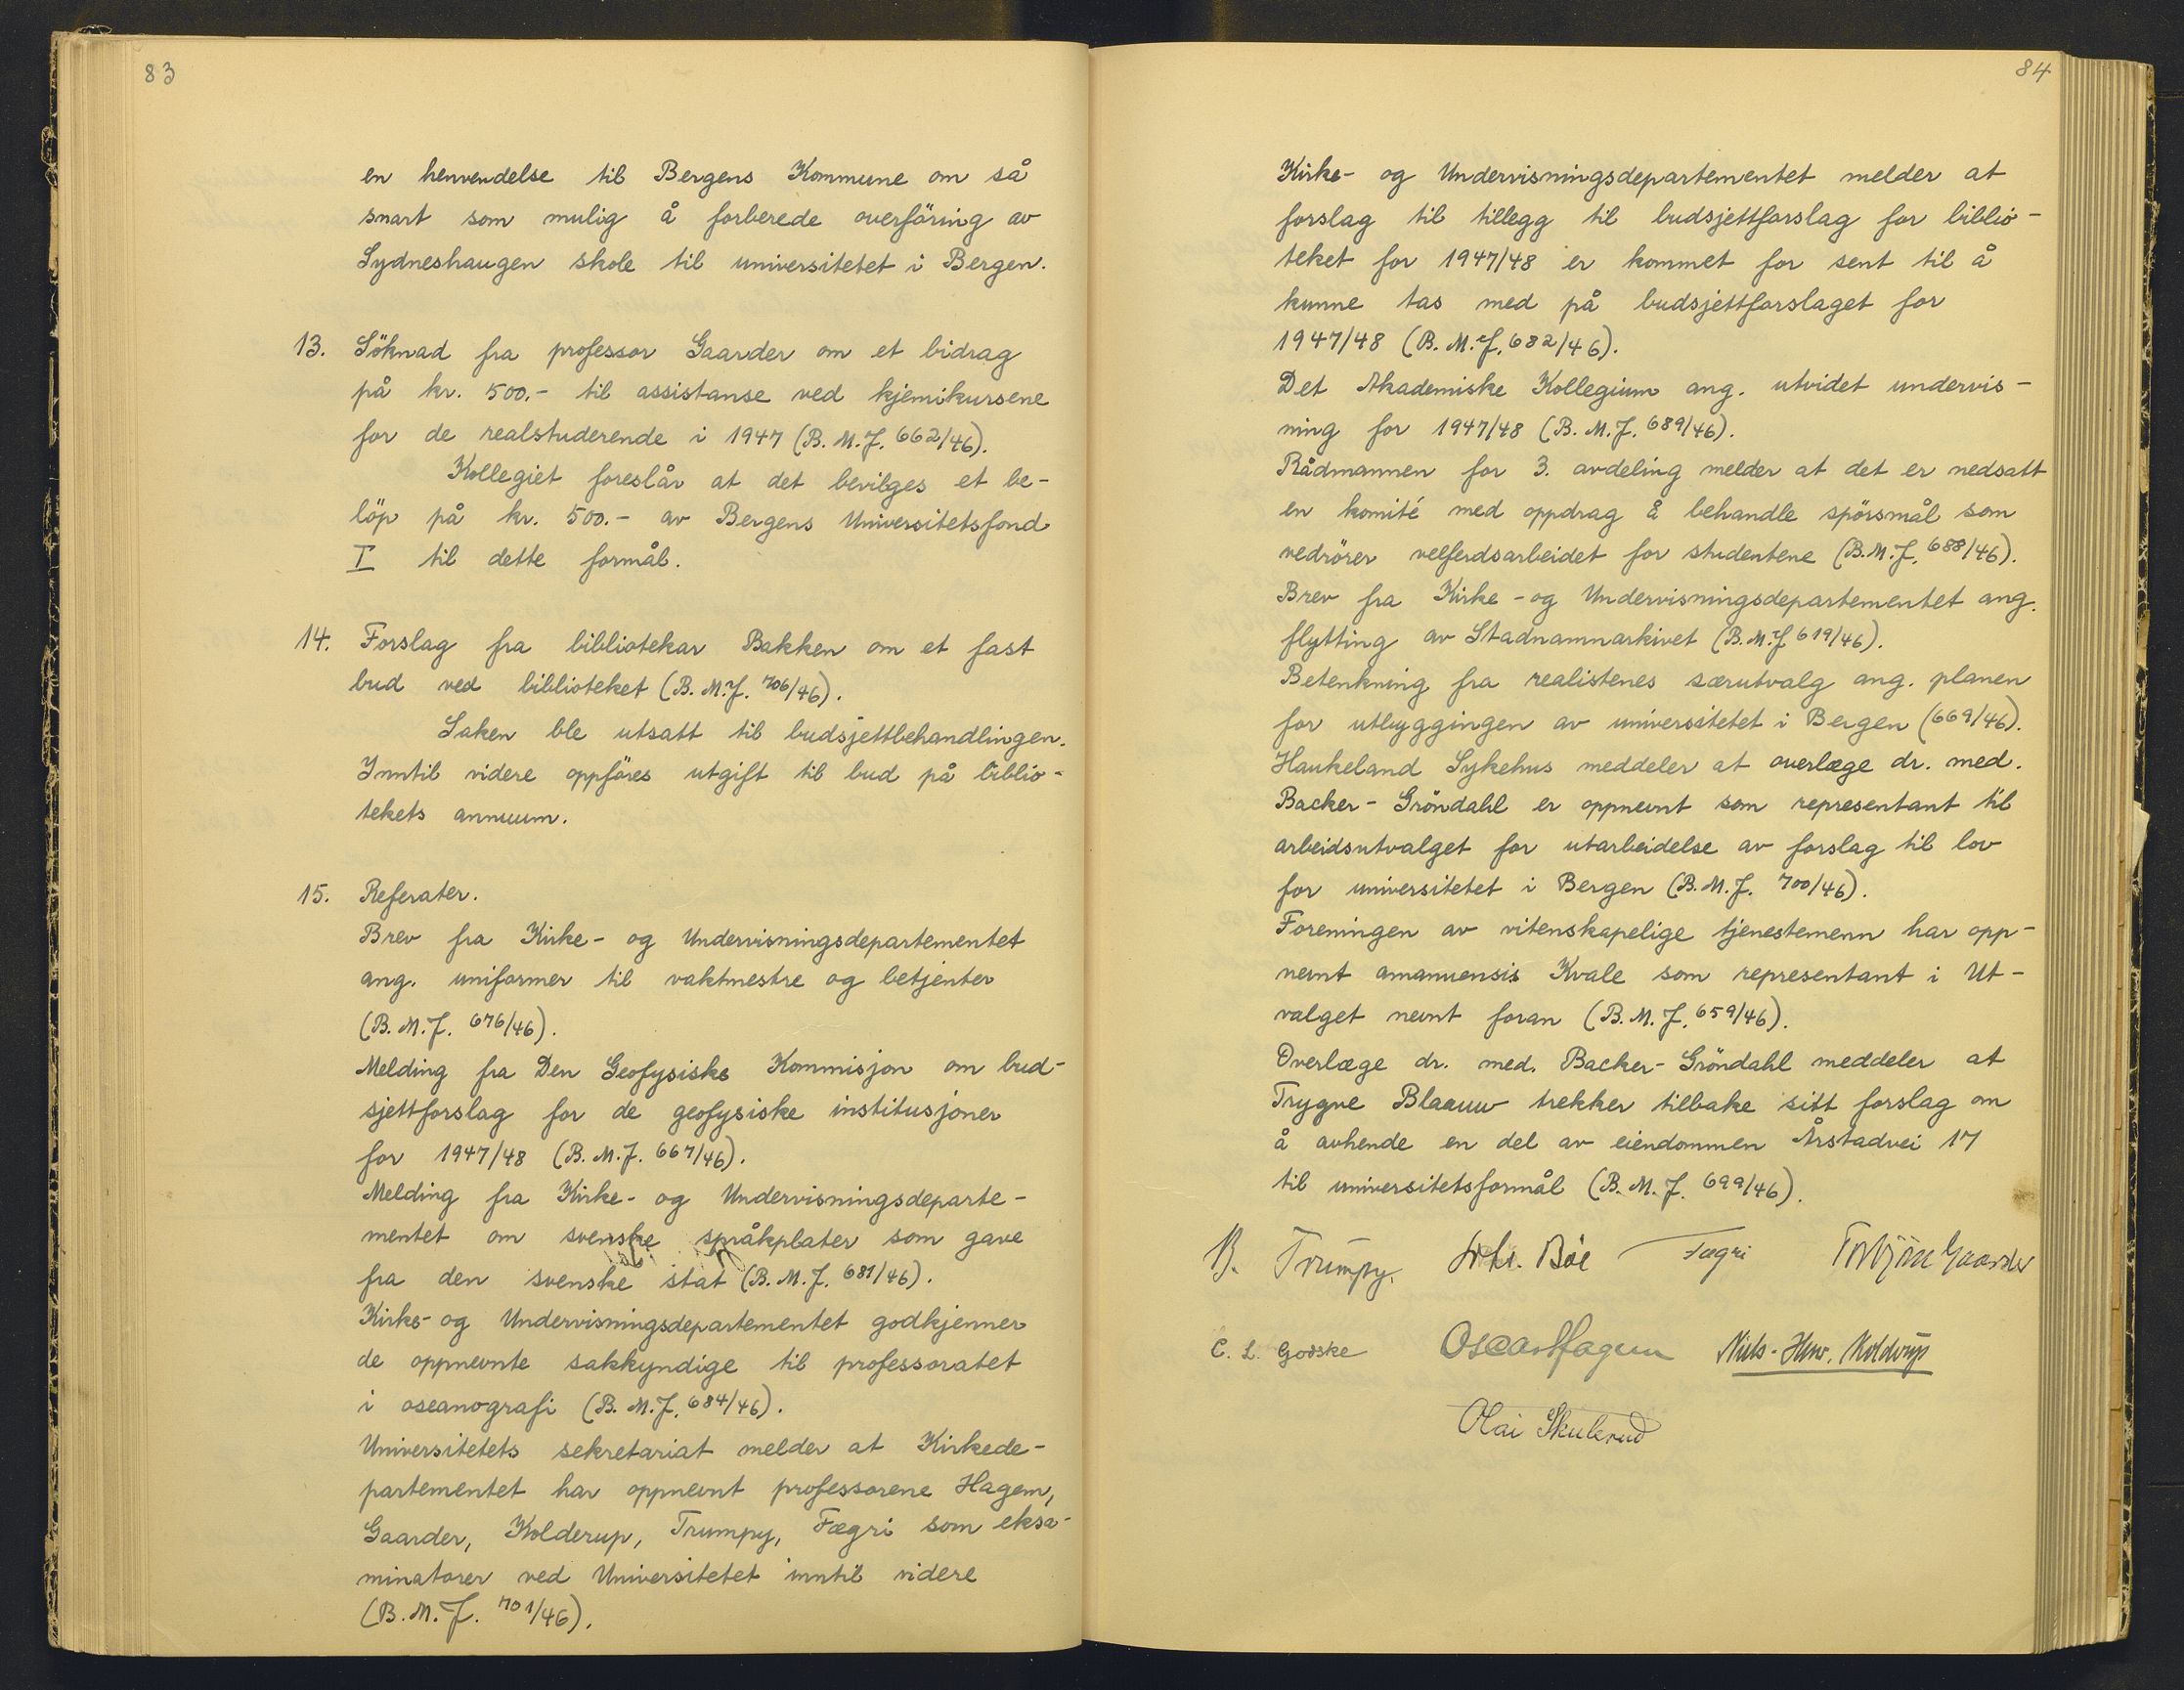 83
en henvendelse til Bergens Kommune om så
snart som mulig å forberede overföring av
Sydneshaugen skole til universitetet i Bergen.
13. Söknad fra professor Gaarder om et bidrag
på kr. 500.- til assistanse ved kjemikursene
for de realstuderende i 1947 (B. M. J. 662/46).
Kollegiet foreslår at det bevilges et be-
löp på kr. 500.- av Bergens Universitetsfond
I til dette formål.
14. Forslag fra bibliotekar Bakken om et fast
bud ved biblioteket (B. M. J. 706/46).
Saken ble utsatt til budsjettbehandlingen.
Inntil videre oppföres utgift til bud på biblio-
tekets annuum.
15. Referater.
Brev fra Kirke- og Undervisningsdepartementet
ang. uniformer til vaktmestre og betjenter
(B. M. J. 676/46).
Melding fra Den Geofysiske Kommisjon om bud-
sjettforslag for de geofysiske institusjoner
for 1947/48 (B. M. J. 667/46).
Melding fra Kirke- og Undervisningsdeparte-
mentet om svenske språkplater som gave
fra den svenske stat (B. M. J. 681/46).
Kirke- og Undervisningsdepartementet godkjenner
de oppnevnte sakkyndige til professoratet
i oseanografi (B. M. J. 684/46).
Universitetets sekretariat melder at Kirkede-
partementet har oppnevnt professorene Hagem,
Gaarder, Kolderup, Trumpy, Fægri som eksa-
minatorer ved Universitetet inntil videre
(B. M. J. 701/46).
84
Kirke- og Undervisningsdepartementet melder at
forslag til tillegg til budsjettforslag for biblio-
teket for 1947/48 er kommet for sent til å
kunne tas med på budsjettforslaget for
1947/48 (B. M. J. 682/46).
Det Akademiske Kollegium ang. utvidet undervis-
ning for 1947/48 (B. M. J. 689/46).
Rådmannen for 3. avdeling melder at det er nedsatt
en komité med oppdrag å behandle spörsmål som
vedrörer velferdsarbeidet for studentene (B. M. J. 688/46).
Brev fra Kirke- og Undervisningsdepartementet ang.
flytting av Stadnamnarkivet (B. M. J 619/46).
Betenkning fra realistenes særutvalg ang. planen
for utbyggingen av universitetet i Bergen (669/46).
Haukeland Sykehus meddeler at overlæge dr. med.
Backer-Gröndahl er oppnevnt som representant til
arbeidsutvalget for utarbeidelse av forslag til lov
for universitetet i Bergen (B. M. J. 700/46).
Foreningen av vitenskapelige tjenestemenn har opp-
nevnt amanuensis Kvale som representant i Ut-
valget nevnt foran (B. M. J. 659/46).
Overlæge dr. med. Backer-Gröndahl meddeler at
Trygve Blaauw trekker tilbake sitt forslag om
å avhende en del av eiendommen Årstadvei 17
til universitetsformål (B. M. J. 699/46).
B. Trumpy. Johs. Böe Fægri Torbjörn Gaarder
C. L. Godske Oscar Hagem Niels-Henr. Kolderup
Olai Skulerud